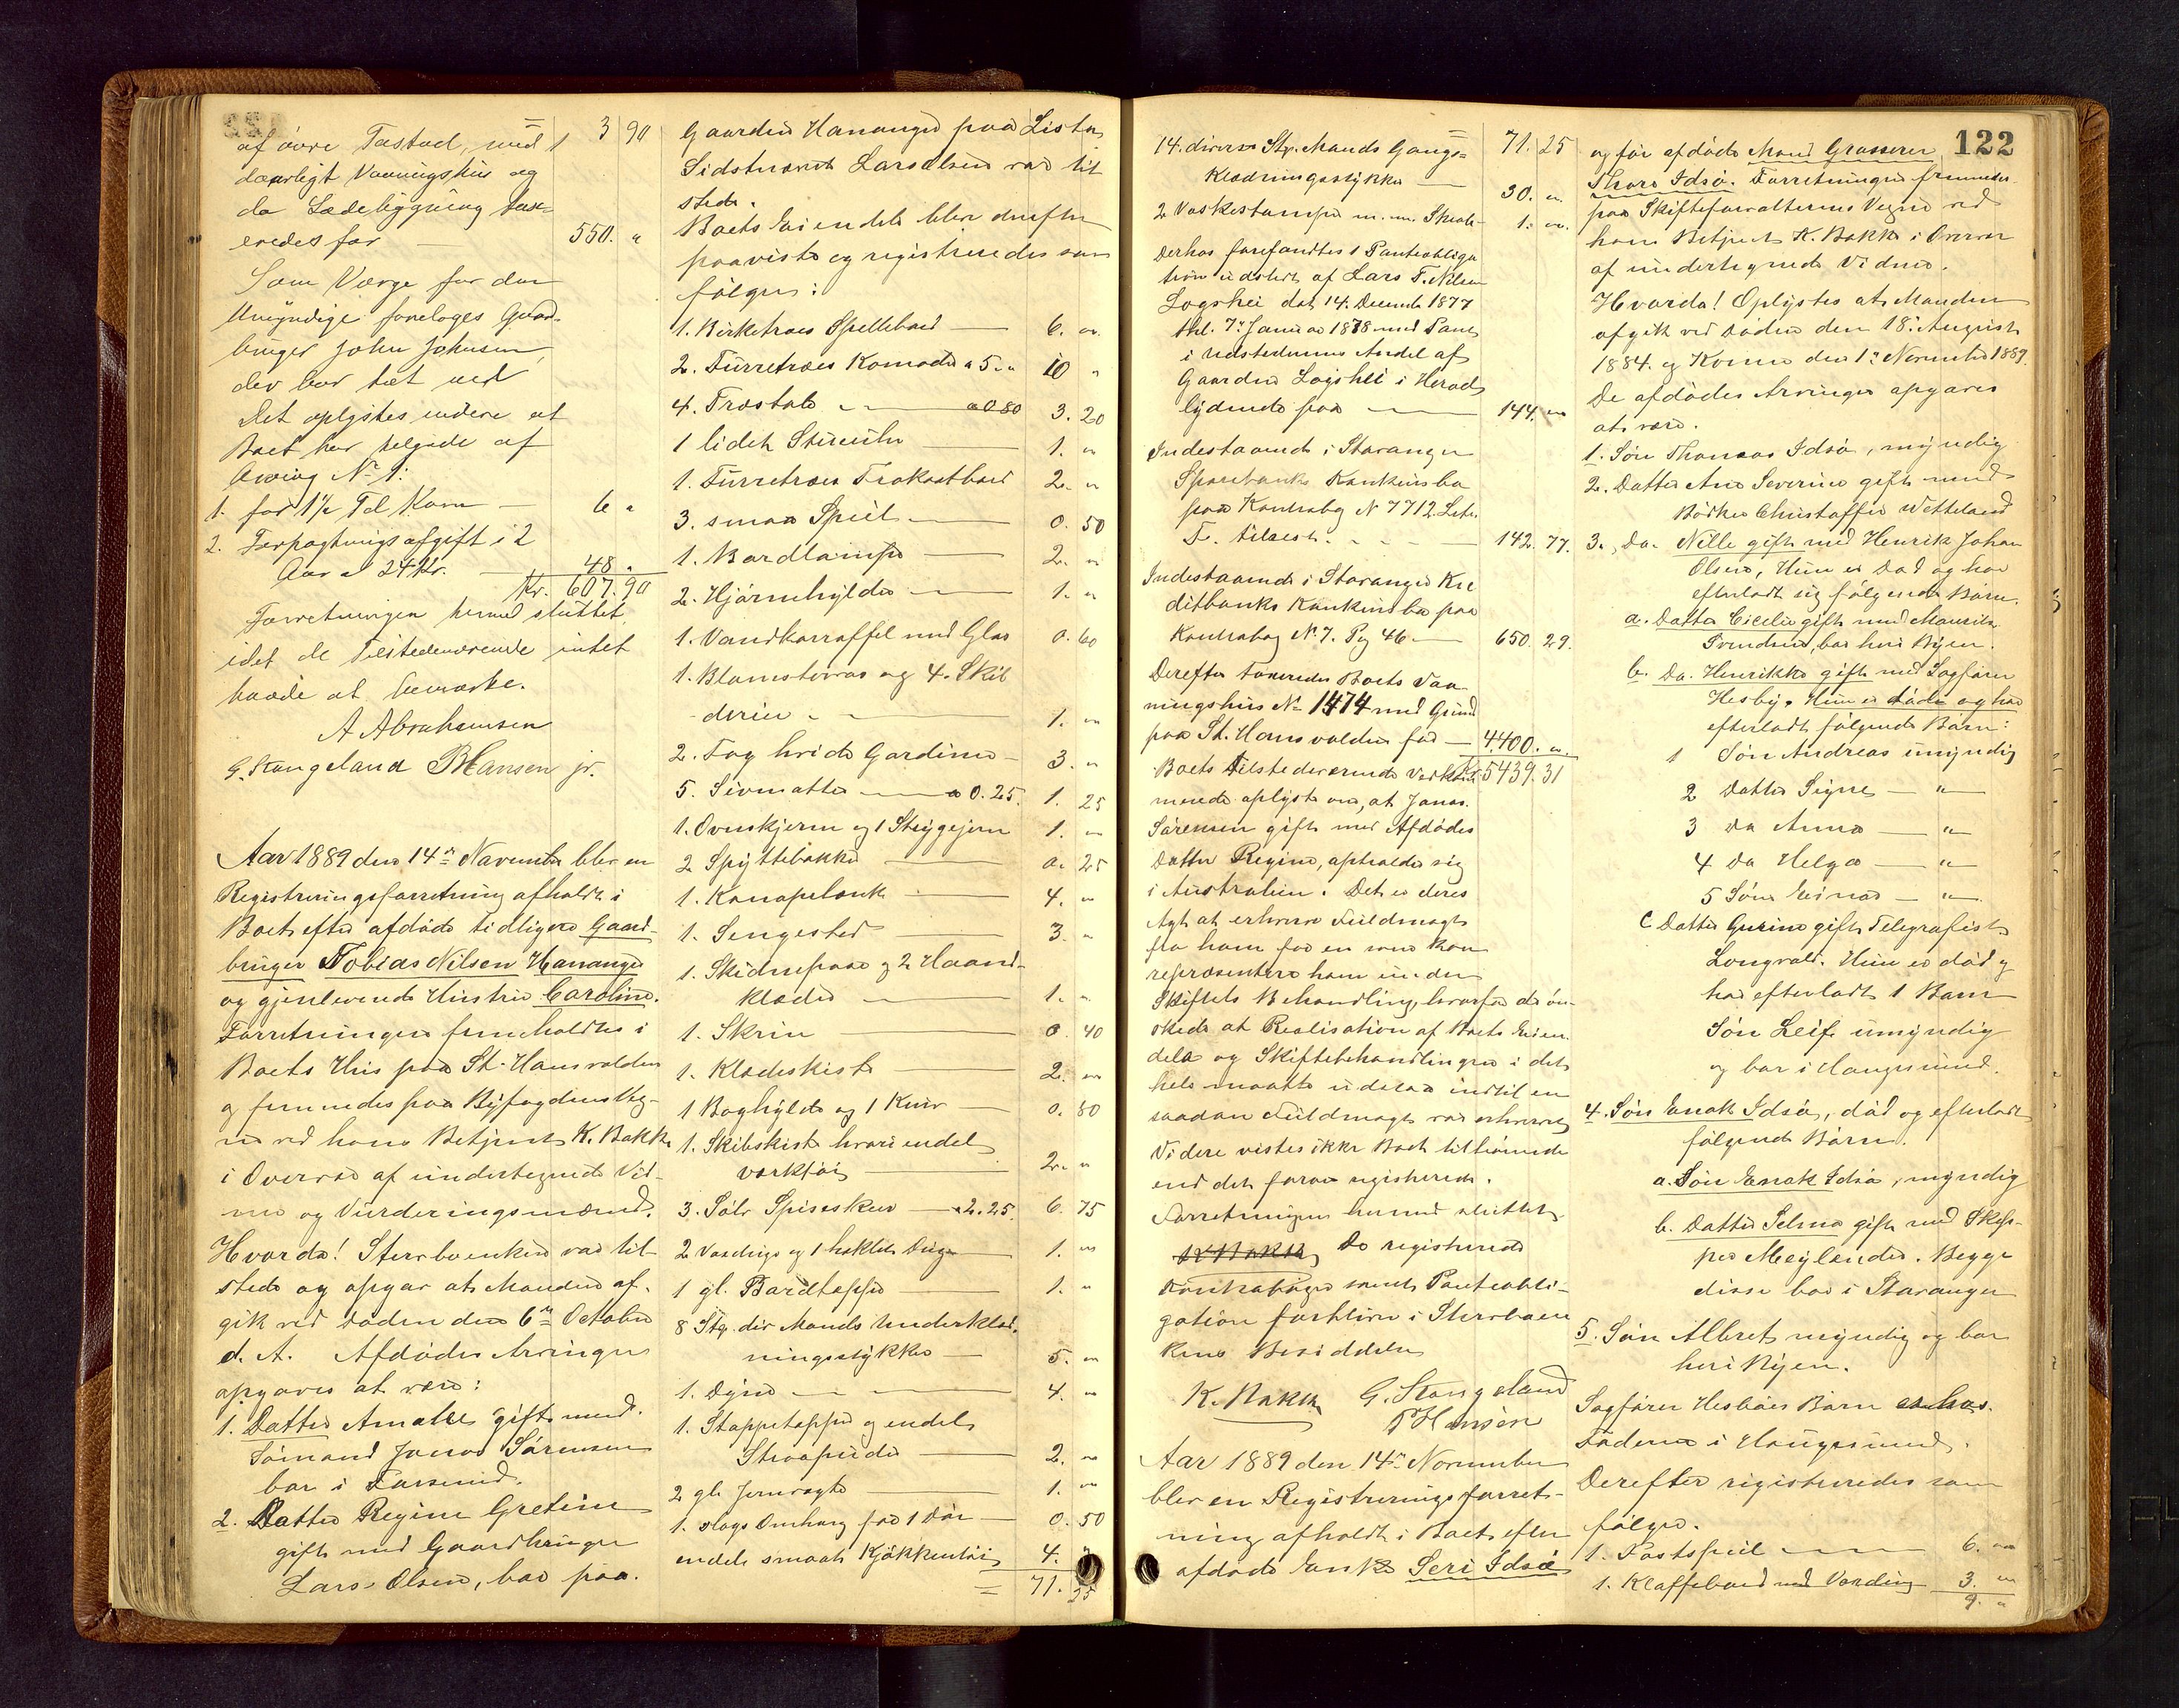 = 3 90
af øvre Tastad, med 1
daarligt Vaaningshus og
do Ladebygning tax-
eredes for — 550. "
Som Værge for den
Umyndige foreloges Gaard-
bruger John Johnsen,
der bor tæt ved
Det oplystes videre at
Boet har tilgode af
Arving No 1:
1. for 1½ Td Korn — 6 "
2. Forpagtningsafgift i 2
Aar a 24 Kr. — 48 "
Kr. 607.90
Forretningen hermed sluttet,
idet de Tilstedeværende intet
havde at bemærke.
A Abrahamsen
G. Stangeland P Hansen jr.
Aar 1889 den 14de November blev en
Registreringsforretning afholdt i
Boet efter afdøde tidligere Gaard-
bruger Tobias Nilsen Hananger
og gjenlevende Hustru Caroline.
Forretningen fremholdtes i
Boets Hus paa St. Hansvolden
og fremmedes paa Byfogdens Veg-
ne ved hans Betjent K. Bakke
i Overvær af undertegnede Vid-
ne og Vurderingsmænd.
Hvorda! Sterboenken var til-
stede og opgav at Manden af-
gik ved Døden den 6te October
d. A. Afdødes Arvinger
opgaves at være:
1. Datter Amalie gift med
Sømand Jonas Sørensen
bor i Farsund.
2. Datter Regine Gretine
gift med Gaardbruger
Lars Olsen, bor paa
Gaarden Hananger paa Lister
Sidstnævnte Lars Olsen var til
stede.
Boets Eiendele blev derefter
paavist og registreredes som
følger:
1. Birketræes Spillebord — 6. "
2. Furretræes Komoder a 5. " 10 "
4. Træstole — a 0 80 3. 20
1 lidet Stueuhr — 1. "
1. Furretræes Frokostbord 2. "
3. smaa Speil — 0. 50
1. Bordlampe — 2. "
2. Hjørnehylder — 1. "
1. Vandkarraffel med Glas 0. 60
1. Blomstervas og 4. Skil
derier — 1. "
2. Fag hvide Gardiner — 3. "
5. Sivmatter — a 0.25. 1. 25
1. Ovnskjerm og 1 Strygejern 1. "
2 Spyttebakker — 0. 25
1. Kanapebænk — 4. "
1. Sengested — 3. "
1. Skidnepose og 2 Haand-
klæder — 1. "
1. Skrin — 0. 40
1. Klædeskiste — 2. "
1 Boghylde og 1 Kurv — 0. 80
1. Skibskiste hvori endel
værktøi — 2. "
3. Sølv Spiseskeer — a 2.25. 6. 75
2 Vaaddug og 1 heklet Dug — 1. "
1 gl. Bordteppe — 1. "
8 Stp. div Mands Underklæd-
ningsstykker — 5. "
1. Dyne — 4. "
1. Stoppeteppe og endel
Straapuder — 2. "
2 gl. Jernvægte — 1. "
1. slags Omhæng for 1 Dør — 0. 50
endel smaat Kjøkkentøi 4. "
= 71. 25
14. diverse Stp. Mands Gangs= 71. 25
Klædningsstykker — 30. "
2 Vaskestamper m. m. Skaale 1. "
Derhos forefandtes 1 Panteobliga
tion udstedt af Lars T. Nilsen
Logshei dat. 14. Decembr 1877
thl. 7de Januar 1878 med Pant
i Udstederens Andel af
Gaarden Logshei i Herad
lydende paa — 144. "
Indestaaende i Stavanger
Sparebank Enkensbo
paa Kontrabog N 7712 Litr.
F. tilrest — 142. 77.
Indestaaende i Stavanger Kre
ditbank Enkensbo paa
Kontrabog No 7. Pg 46 — 650. 29.
Derefter taxeredes Boets Vaa-
ningshus No 1474 med Grund
paa St. Hansvolden for — 4400. "
Boets Tilstedeværende vedkom- Kr 5439.31
mende oplyste om, at Jonas
Sørensen gift med Afdødes
Datter Regine, opholder sig
i Australien. Det er deres
Agt at erhverve Fuldmagt
fra ham for en som kan
repræsentere ham under
Skiftets Behandling hvorfor de øn-
skede at Realisation af Boets Eien-
dele og Skiftebehandlingen i det
hele maatte udestaa indtil en
saadan Fuldmagt var erhvervet
Videre vistes ikke Boet tilhørende
end det foran registrerede.
Forretningen hermed sluttet
K Bakke De registrerede
Kontrabøger samt Panteobli-
gation forbliver i Sterboen
kens Besiddelse
K. Bakke G. Stangeland
P Hansen
Aar 1889 den 14de November
blev en Registreringsforret-
ning afholdt i Boet efter
afdøde Enke Seri Idsø
122
og før afdøde Mand Grosserer
Thore Idsø. Forretningen fremmedes
paa Skifteforvalterens Vegne ved
hans Betjent K. Bakke i Overvær
af undertegnede Vidner.
Hvorda! Oplystes at Manden
afgik ved Døden den 18de August
1884. og Konen den 1ste November 1889.
De afdødes Arvinger opgaves
at være.
1. Søn Thomas Idsø, myndig
2. Datter Ane Severine gift med
Bødker Christoffer Wetteland
3. Do. Nille gift med Henrik Johan
Olsen, Hun er Død og har
efterladt sig følgende Børn.
a. Datter Cicelie gift med Mauritz
Svendsen, bor her i Byen.
b. Do. Henrikke gift med Sagfører
Hesby. Hun er døde og har
efterladt følgende Børn:
1 Søn Andreas umyndig
2 Datter Signe — " —
3 Do Anna — " —
4 Do Helga — " —
5 Søn Einar — " —
C Datter Gurine gift Telegrafist
Longvald. Hun er død og
har efterladt 1 Barn
Søn Leif umyndig
og bor i Haugesund.
4. Søn Enok Idsø, død og efterladt
følgende Børn.
a. Søn Enok Idsø, myndig
b. Datter Selma gift med Skip-
per Meylænder. Begge
disse bor i Stavanger
5. Søn Albret myndig og bor
her i Byen.
Sagfører Hesbøes Børn er hos
Faderen i Haugesund.
Derefter registreredes som
følger.
1. Fastspeil — 6. "
1. Klaffebord med Vosdug 3. "
9. "